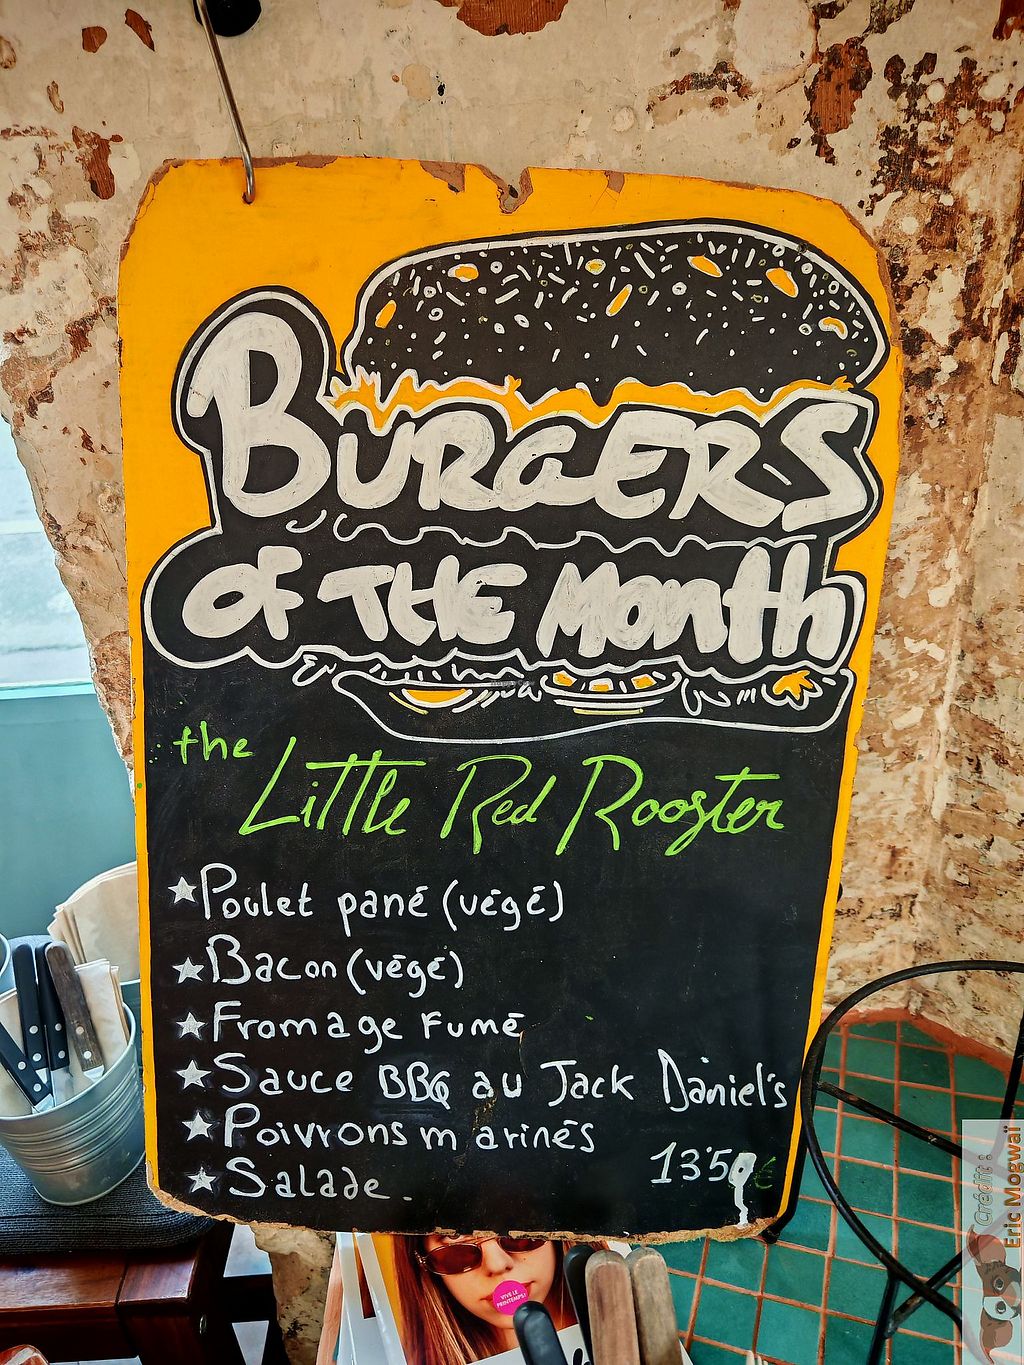 BURGERS
of THE Month
the
Little Red Rooster
★ Poulet pané (végé)
★ Bacon (végé)
★ Fromage Fumé
★ Sauce BBQ au Jack Daniel's
★ Poivrons marinés
★ Salade.
13'50€
VIVE LE
PRINTEMPS!
Crédit :
Eric Mogwaï